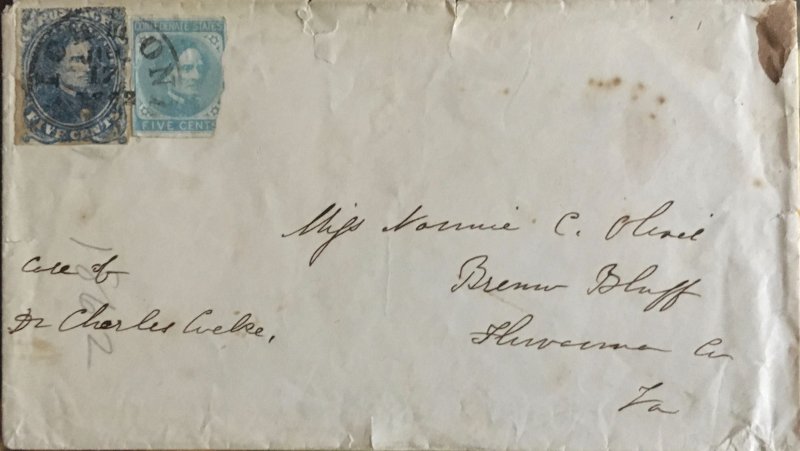 POSTAGE
FIVE CENTS
CONFEDERATE STATES
FIVE CENTS
ON
17
Miss Nannie C.
Bremo Bluff
Fluvanna Co
Va
Care of
Dr Charles Cocke,
1862